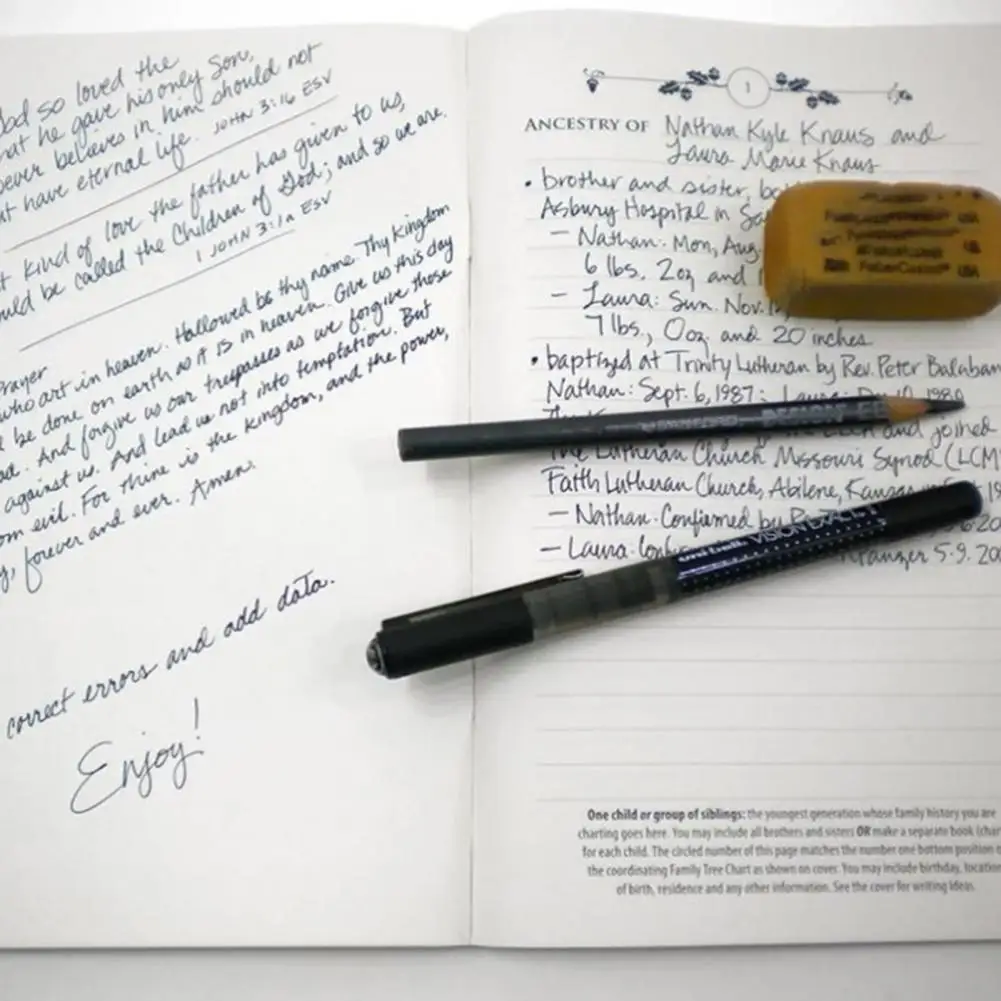 God so loved the
that he gave his only Son,
believes in him should not
but have eternal life. JOHN 3:16 ESV
kind of love the father has given to us,
be called the Children of God; and so we are.
1 JOHN 3:1a ESV
Prayer
who art in heaven. Hallowed be thy name. Thy Kingdom
be done on earth as it is in heaven. Give us this day
And forgive us our trespasses as we forgive those
against us. And lead us not into temptation. But
evil. For thine is the kingdom, and the power,
forever and ever. Amen.
correct errors and add data.
Enjoy!
1
ANCESTRY OF Nathan Kyle Knaus and
Laura Marie Knaus
• brother and sister,
Asbury Hospital in
– Nathan: Mon, Aug
6 lbs. 2oz and
– Laura: Sun. Nov.
7 lbs., 0oz. and 20 inches
• baptized at Trinity Lutheran by Rev. Peter Balaban
Nathan: Sept. 6, 1987; Laura:
and joined
The Lutheran Church Missouri Synod (LCM
Faith Lutheran Church, Abilene,
– Nathan. Confirmed by
– Laura: 5.9.20
DESIGN
uni-ball. VISION EXACT
USA
FaberCastell USA
One child or group of siblings: the youngest generation whose family history you are
charting goes here. You may include all brothers and sisters OR make a separate book (char
for each child. The circled number of this page matches the number one bottom position o
the coordinating Family Tree Chart as shown on cover. You may include birthday, location
of birth, residence and any other information. See the cover for writing ideas.